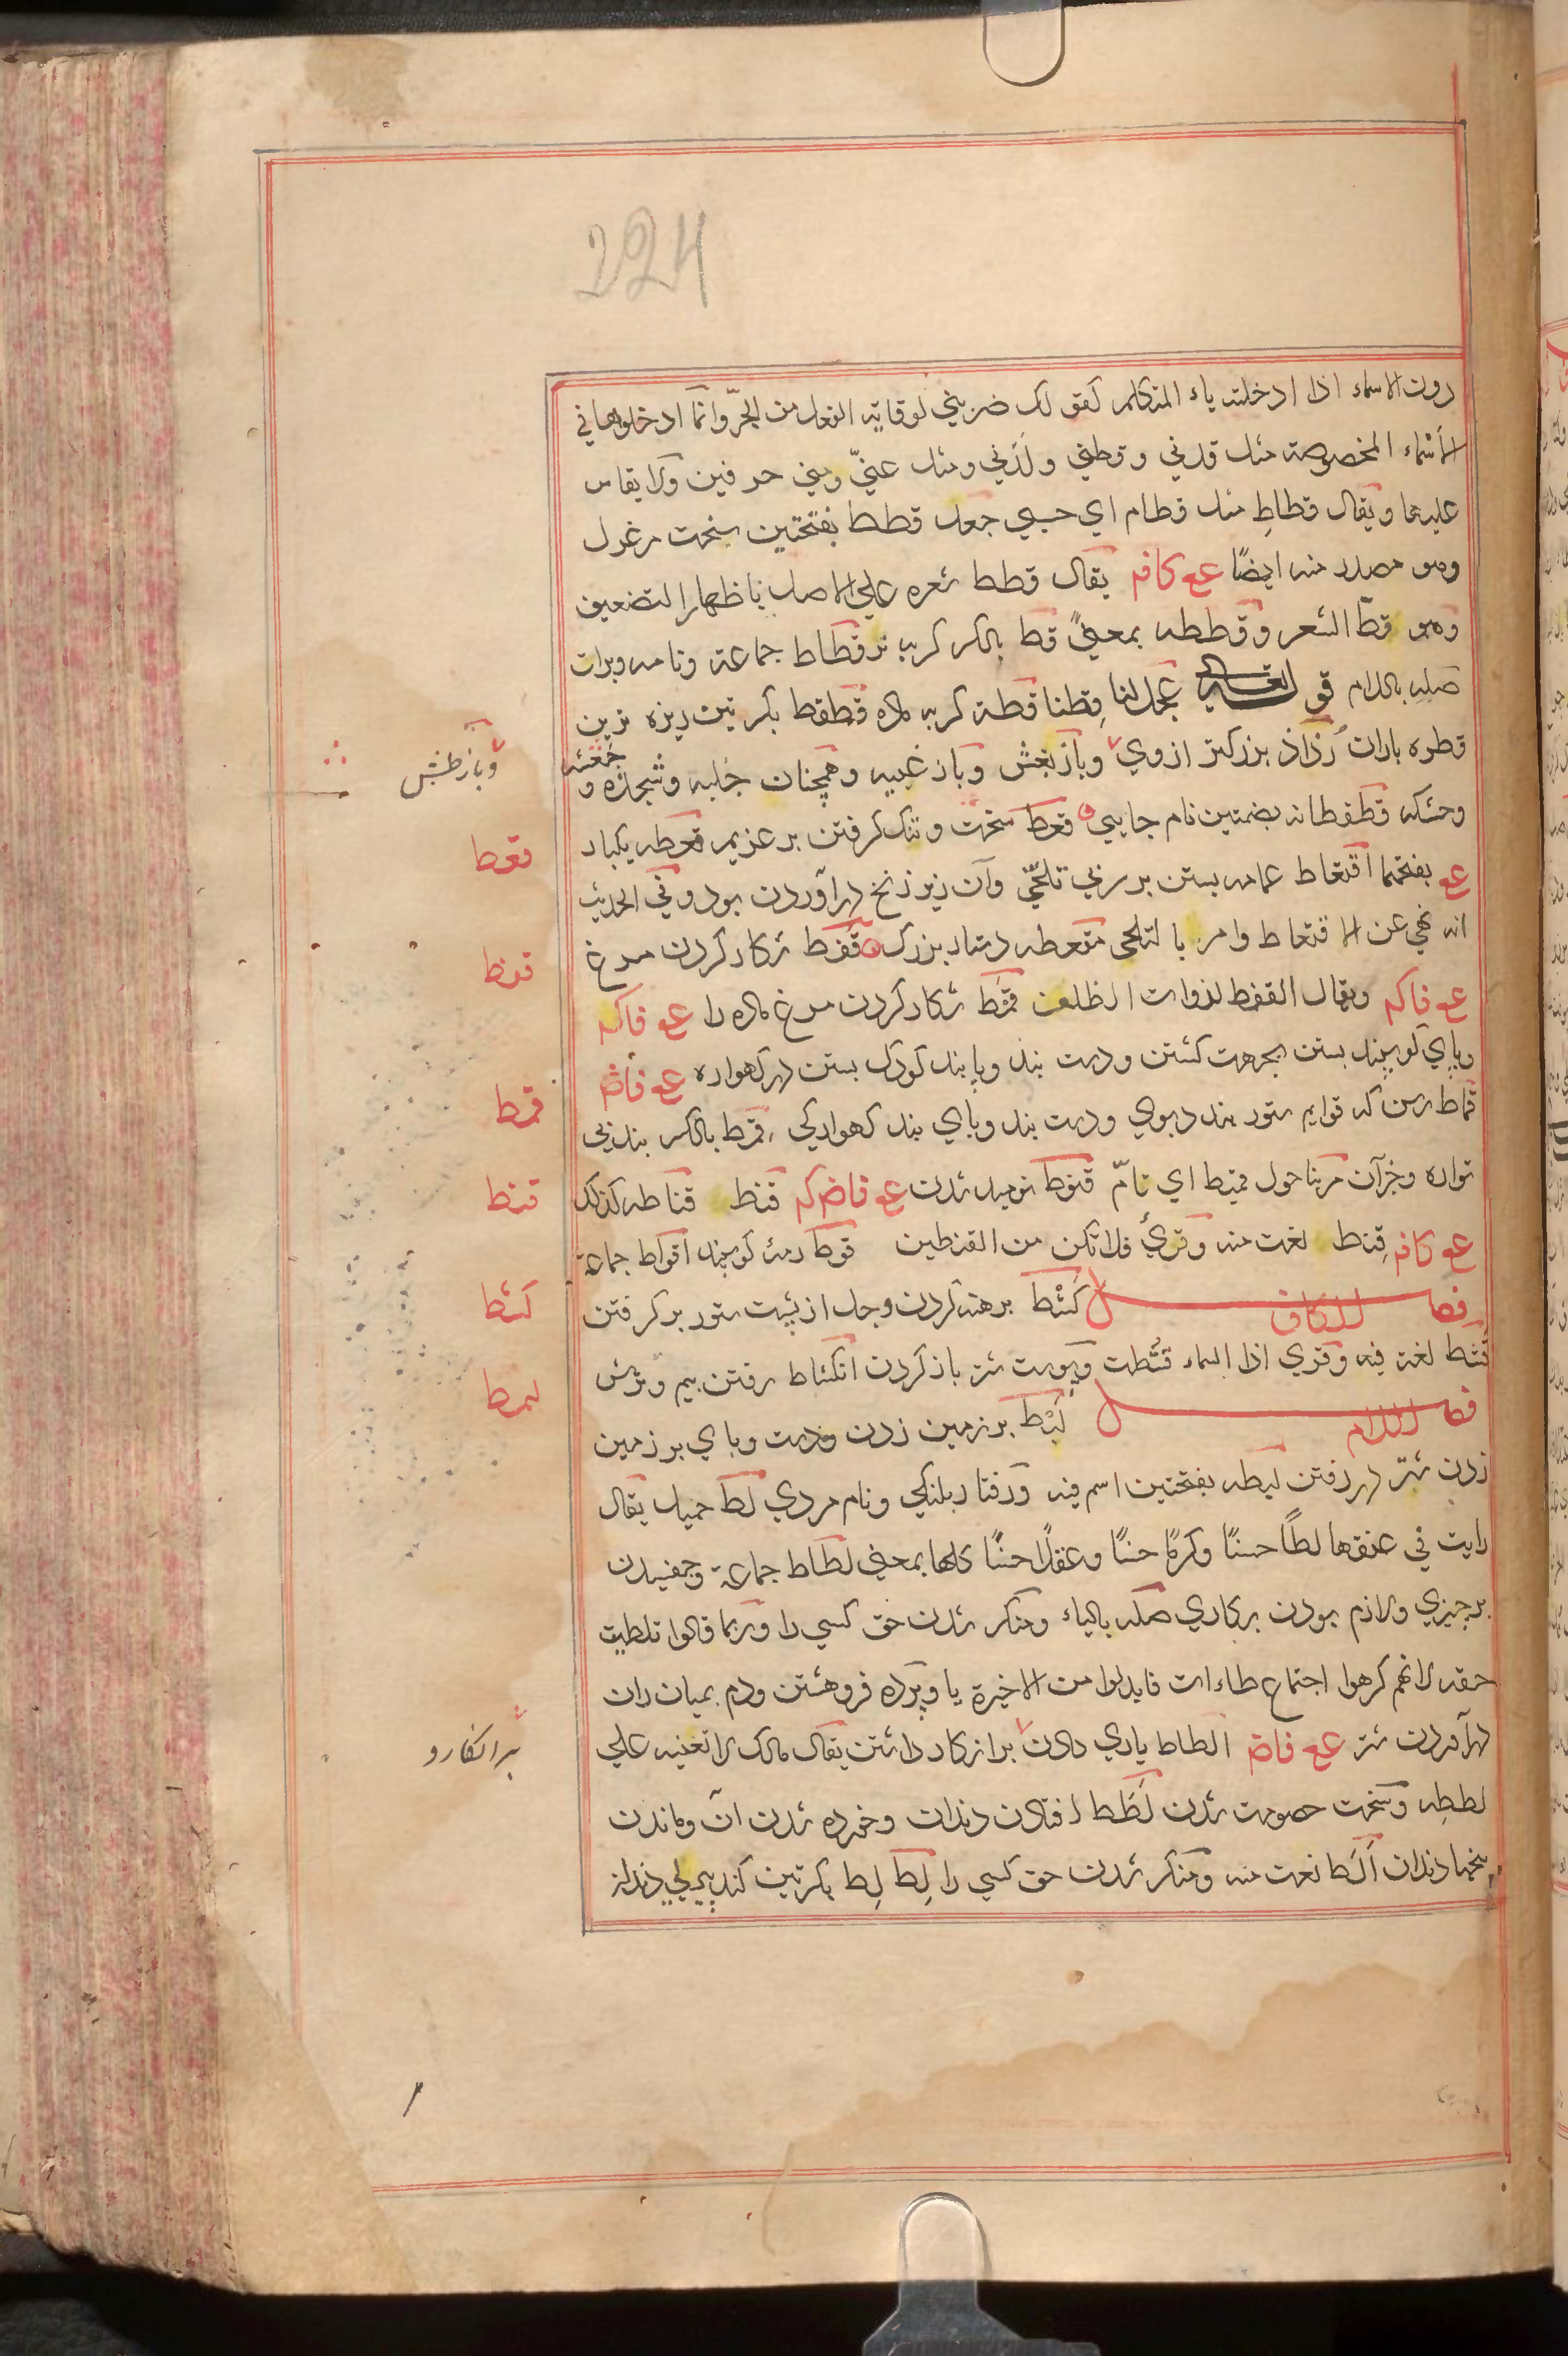 224
دون الاسماء اذا ادخلته ياء المتكلم كقولك ضربني لوقاية الفعل من الجرّ وانّما ادخلوها في
الأسماء المخصوصة مثل قدني و قطني و لدني ومثل عنّي ومنّي حرفين ولا يقاس
عليهما ويقال قطاطِ مثل قطام اي حسبي جعد قطط بفتحتين سخت مرغول
وهو مصدر منه ايضًا عع كافه يقال قطط شعره علي الاصل باظهار التضعيف
وهو قطّ الشعر و قططه بمعنيً قط بالكسر گربه نر قطاط جماعة ونامه وبرات
صله باللام قو تعالي عجل لنا قِطنا قطة گربه ماده قطقط بكسرتين ريزه ترين
قطره باران رذاذ بزركتر ازوي وباز بغش وباز غيبه وهمچنان حلبه وشجذه و حفشه
وحشكه قطقطانه بضمتين نام جايي قعط سخت وتنك گرفتن بر غريم قعطه يكبار
عع بفتحهما اقتعاط عمامه بستن بر سر بي تلحّي وآن زير زنخ در آوردن بود وفي الحديث
انه نهي عن الاقتعاط وامر بالتلحي مقعطه دستار بزرك قفط شكار كردن مرغ
عع فاكه ويقال القفط لذوات الظلف قمط شكار كردن مرغ ماده را عع فاكه
وپاي گوسپند بستن بجهت كشتن ودست بند وپا بند كودك بستن در گهواره عع فاضه
قماط رسن كه قوايم ستور بندد بوي ودست بند وپاي بند گهوارگي قمط بالكسر بند ني
نواره وجز آن مر بنا حول قميط اي تامّ قنوط نوميد شدن عع فاضركه قنط قناطه كذلك
عع كافه قنط لغت منه وقرئ فلا تكن من القنطين قوط رمه گوسپند اقواط جماعة
فصل الكاف كشط برهنه كردن وجل از پشت ستور بر گرفتن
قشط لغة فيه وقري اذا السماء قشطت وپوست شتر باز كردن انكشاط رفتن بيم وترس
فصل اللام لبط بر زمين زدن ودست وپاي بر زمين
زدن شتر در رفتن لبطه بفتحتين اسم فيه ورفتار بلنگي ونام مردي لط حميل يقال
رايت في عنقها لطًّا حسنًا وكرمًا حسنًا وعقدًا حسنًا كلها بمعني لطاط جماعة وچفسيدن
بر چيزي ولازم بودن بركاري صله بالباء ومنكر شدن حق كسي را وربما قالوا تلطيت
حقه لانهم كرهوا اجتماع طاءات فابدلوا من الاخيرة يا وپرده فرو هشتن ودم بميان ران
در آوردن شتر عع فاضه الطاط ياري دادن بر انكار داشتن يقال مالك لا تعينه علي
لططه وسخت خصومت شدن لطط افتادن دندان وخورده شدن آن وماندن
بيخها دندان ألط نعت منه ومنكر شدن حق كسي را لِط لِط بكسرتين گنده پير بي دندان
وباز طش
قعط
قفط
قمط
قنط
كشط
لبط
بر انكار و